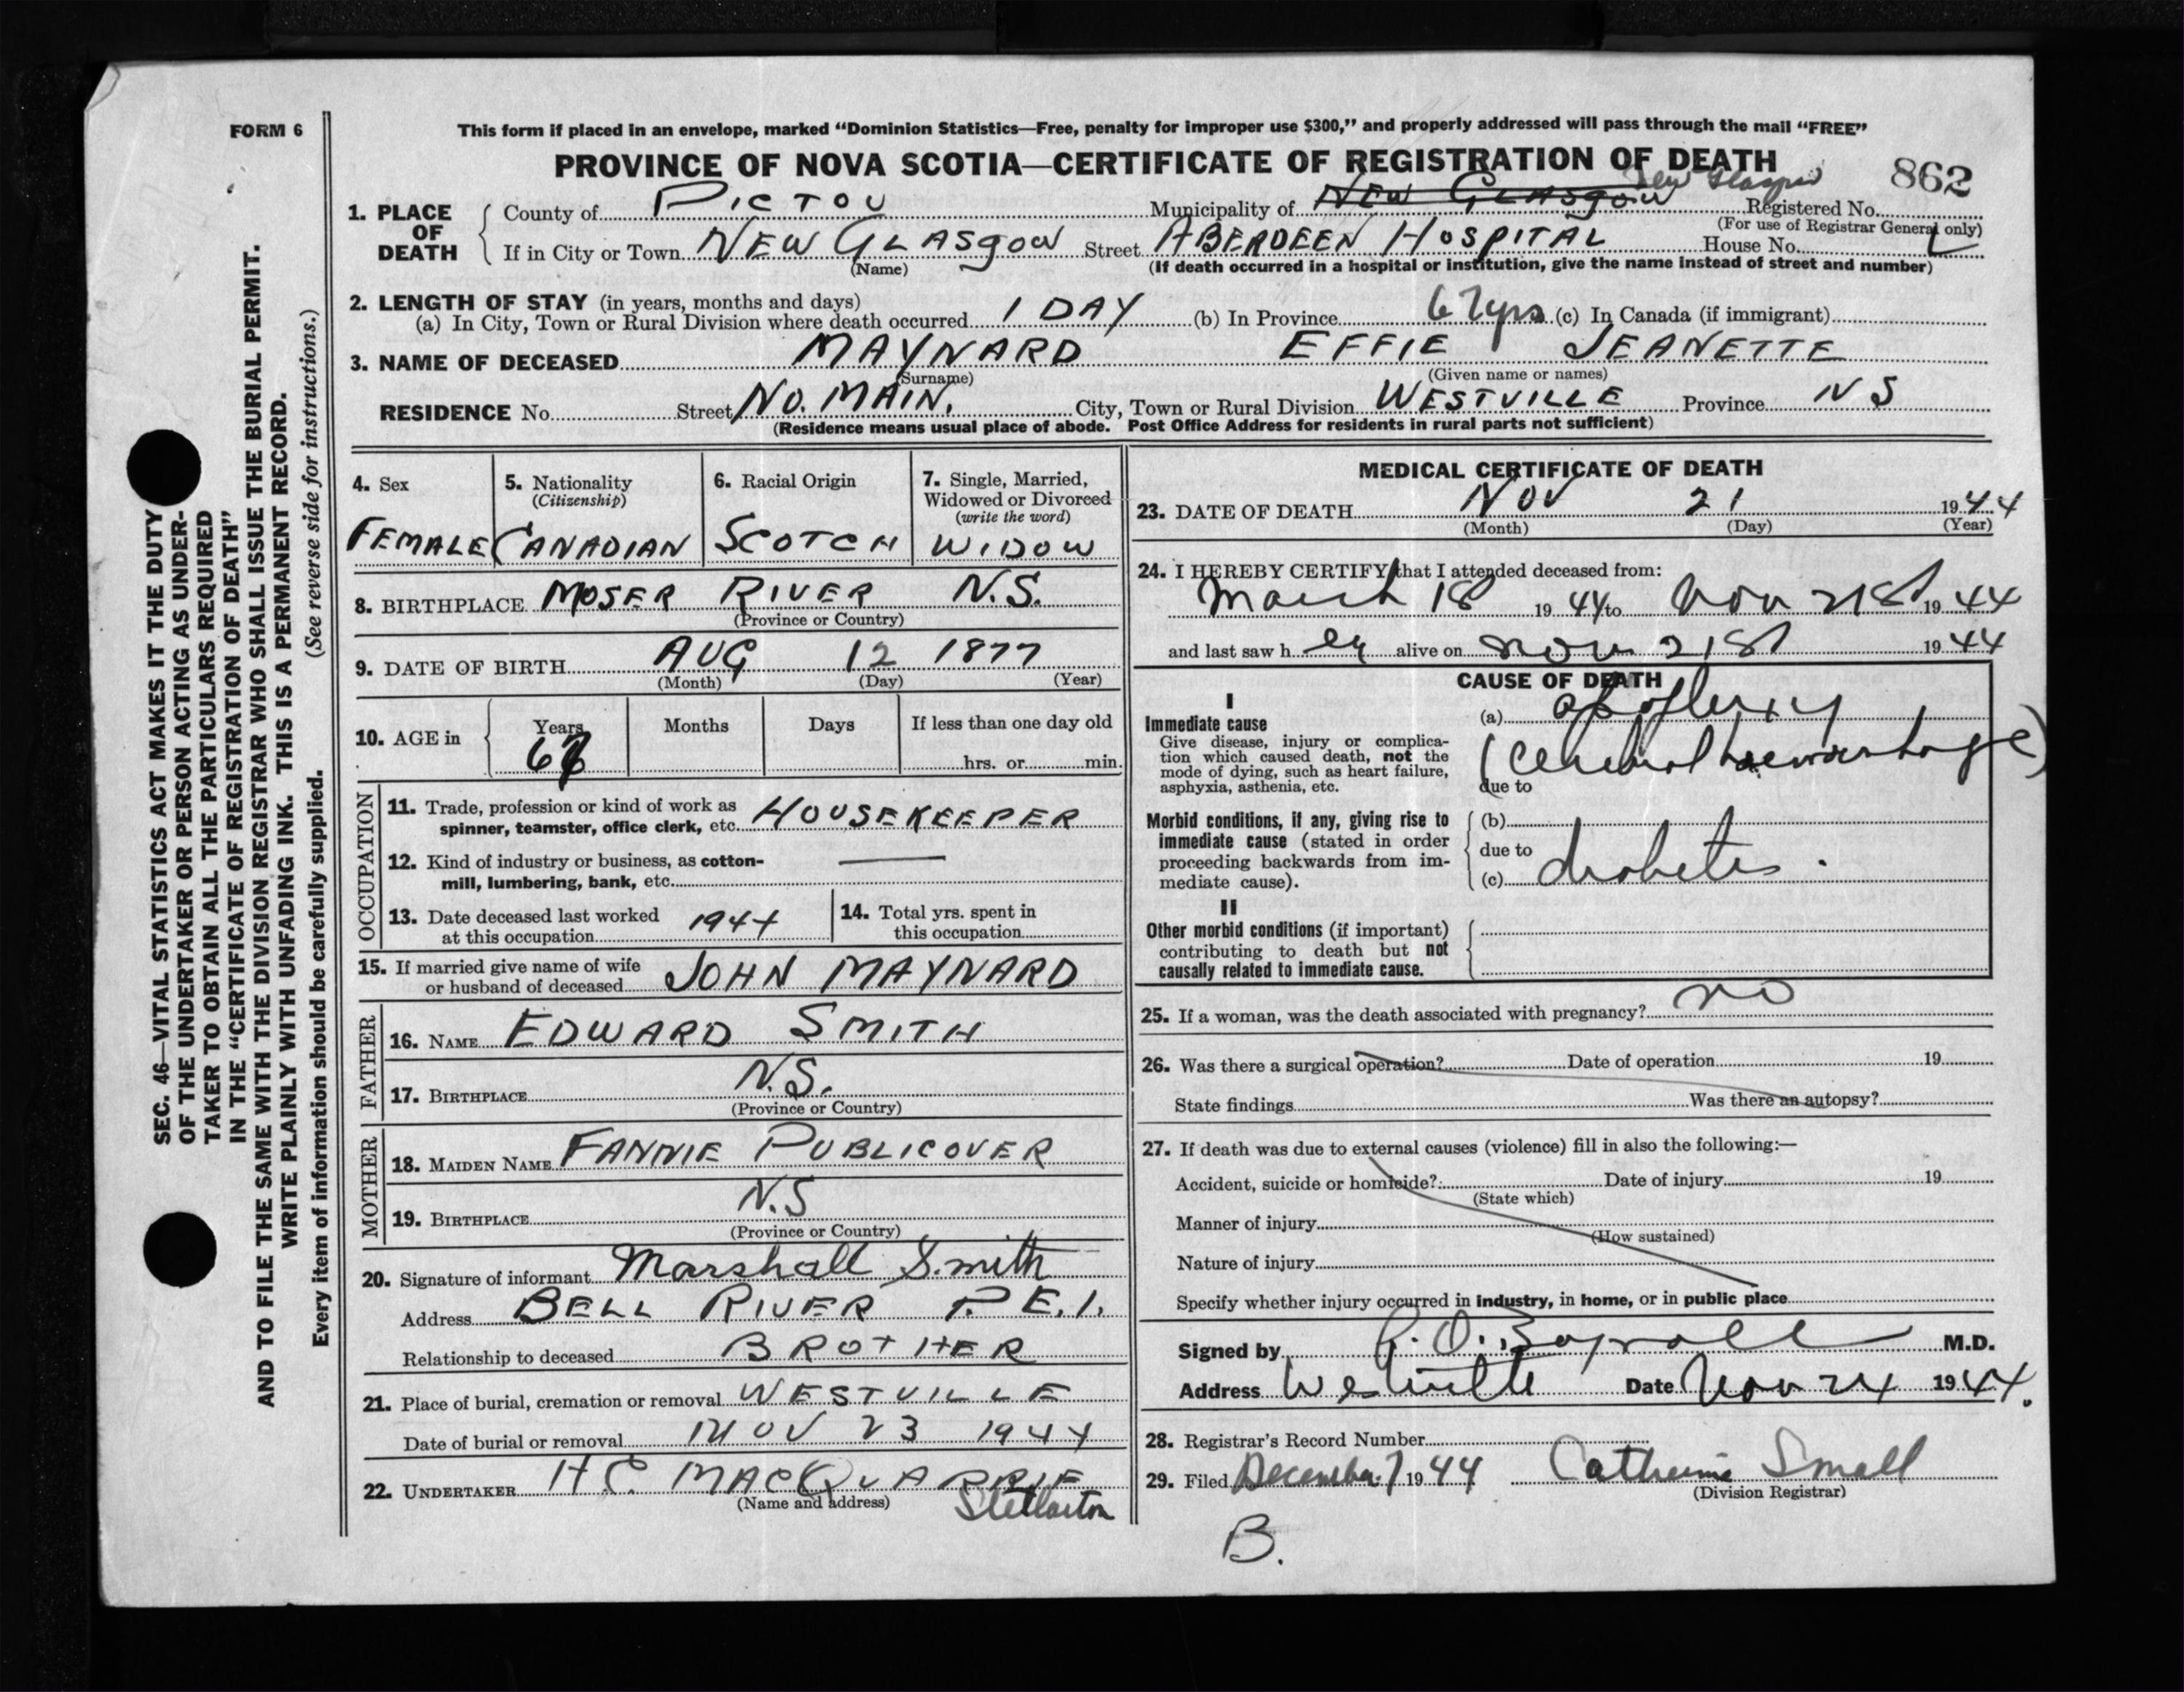 FORM 6
This form if placed in an envelope, marked "Dominion Statistics—Free, penalty for improper use $300," and properly addressed will pass through the mail "FREE"
PROVINCE OF NOVA SCOTIA—CERTIFICATE OF REGISTRATION OF DEATH
862
1. PLACE OF DEATH
County of PICTOU Municipality of NEW GLASGOW New Glasgow Registered No.
(For use of Registrar General only)
If in City or Town NEW GLASGOW Street ABERDEEN HOSPITAL House No.
(Name) (If death occurred in a hospital or institution, give the name instead of street and number)
2. LENGTH OF STAY (in years, months and days)
(a) In City, Town or Rural Division where death occurred 1 DAY (b) In Province 67yrs (c) In Canada (if immigrant)
3. NAME OF DECEASED MAYNARD EFFIE JEANETTE
(Surname) (Given name or names)
RESIDENCE No. Street NO. MAIN. City, Town or Rural Division WESTVILLE Province NS
(Residence means usual place of abode. Post Office Address for residents in rural parts not sufficient)
4. Sex
FEMALE
5. Nationality
(Citizenship)
CANADIAN
6. Racial Origin
SCOTCH
7. Single, Married,
Widowed or Divorced
(write the word)
WIDOW
8. BIRTHPLACE MOSER RIVER N.S.
(Province or Country)
9. DATE OF BIRTH AUG 12 1877
(Month) (Day) (Year)
10. AGE in Years Months Days If less than one day old
67 hrs. or min.
OCCUPATION
11. Trade, profession or kind of work as
spinner, teamster, office clerk, etc. HOUSEKEEPER
12. Kind of industry or business, as cotton-
mill, lumbering, bank, etc. —
13. Date deceased last worked
at this occupation 1944
14. Total yrs. spent in
this occupation
15. If married give name of wife
or husband of deceased JOHN MAYNARD
FATHER
16. NAME EDWARD SMITH
17. BIRTHPLACE N.S.
(Province or Country)
MOTHER
18. MAIDEN NAME FANNIE PUBLICOVER
19. BIRTHPLACE N.S
(Province or Country)
20. Signature of informant Marshall Smith
Address BELL RIVER P.E.I.
Relationship to deceased BROTHER
21. Place of burial, cremation or removal WESTVILLE
Date of burial or removal NOV 23 1944
22. UNDERTAKER H.C. MACQUARRIE
(Name and address) Stellarton
MEDICAL CERTIFICATE OF DEATH
23. DATE OF DEATH NOV 21 1944
(Month) (Day) (Year)
24. I HEREBY CERTIFY that I attended deceased from:
March 18 1944 to Nov 21st 1944
and last saw h er alive on Nov 21st 1944
CAUSE OF DEATH
I
Immediate cause
Give disease, injury or complica-
tion which caused death, not the
mode of dying, such as heart failure,
asphyxia, asthenia, etc.
(a) apoplexy
(Cerebral haemorrhage)
due to
Morbid conditions, if any, giving rise to
immediate cause (stated in order
proceeding backwards from im-
mediate cause).
(b)
due to
(c) diabetes.
II
Other morbid conditions (if important)
contributing to death but not
causally related to immediate cause.
25. If a woman, was the death associated with pregnancy? no
26. Was there a surgical operation? Date of operation 19
State findings Was there an autopsy?
27. If death was due to external causes (violence) fill in also the following:—
Accident, suicide or homicide?: Date of injury 19
(State which)
Manner of injury
(How sustained)
Nature of injury
Specify whether injury occurred in industry, in home, or in public place
Signed by M.D.
Address Westville Date Nov 24 1944.
28. Registrar's Record Number
29. Filed December 7 1944 Catherine Small
(Division Registrar)
B.
SEC. 46—VITAL STATISTICS ACT MAKES IT THE DUTY
OF THE UNDERTAKER OR PERSON ACTING AS UNDER-
TAKER TO OBTAIN ALL THE PARTICULARS REQUIRED
IN THE "CERTIFICATE OF REGISTRATION OF DEATH"
AND TO FILE THE SAME WITH THE DIVISION REGISTRAR WHO SHALL ISSUE THE BURIAL PERMIT.
WRITE PLAINLY WITH UNFADING INK. THIS IS A PERMANENT RECORD.
Every item of information should be carefully supplied. (See reverse side for instructions.)